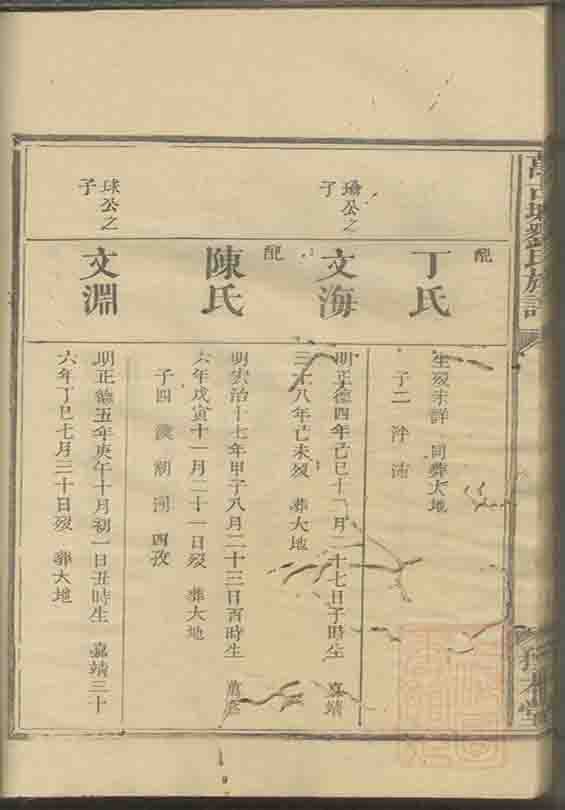 劉氏族譜
配
丁氏
生歿未詳 同葬大地
子二
瓊公之
子
文海
明正德四年己巳十二月二十七日子時生 嘉靖
三十八年己未歿 葬大地
配
陳氏
明弘治十七年甲子八月二十三日酉時生 萬曆
六年戊寅十一月二十一日歿 葬大地
子四
球公之
子
文淵
明正德五年庚午十月初一日丑時生 嘉靖三十
六年丁巳七月二十日歿 葬大地